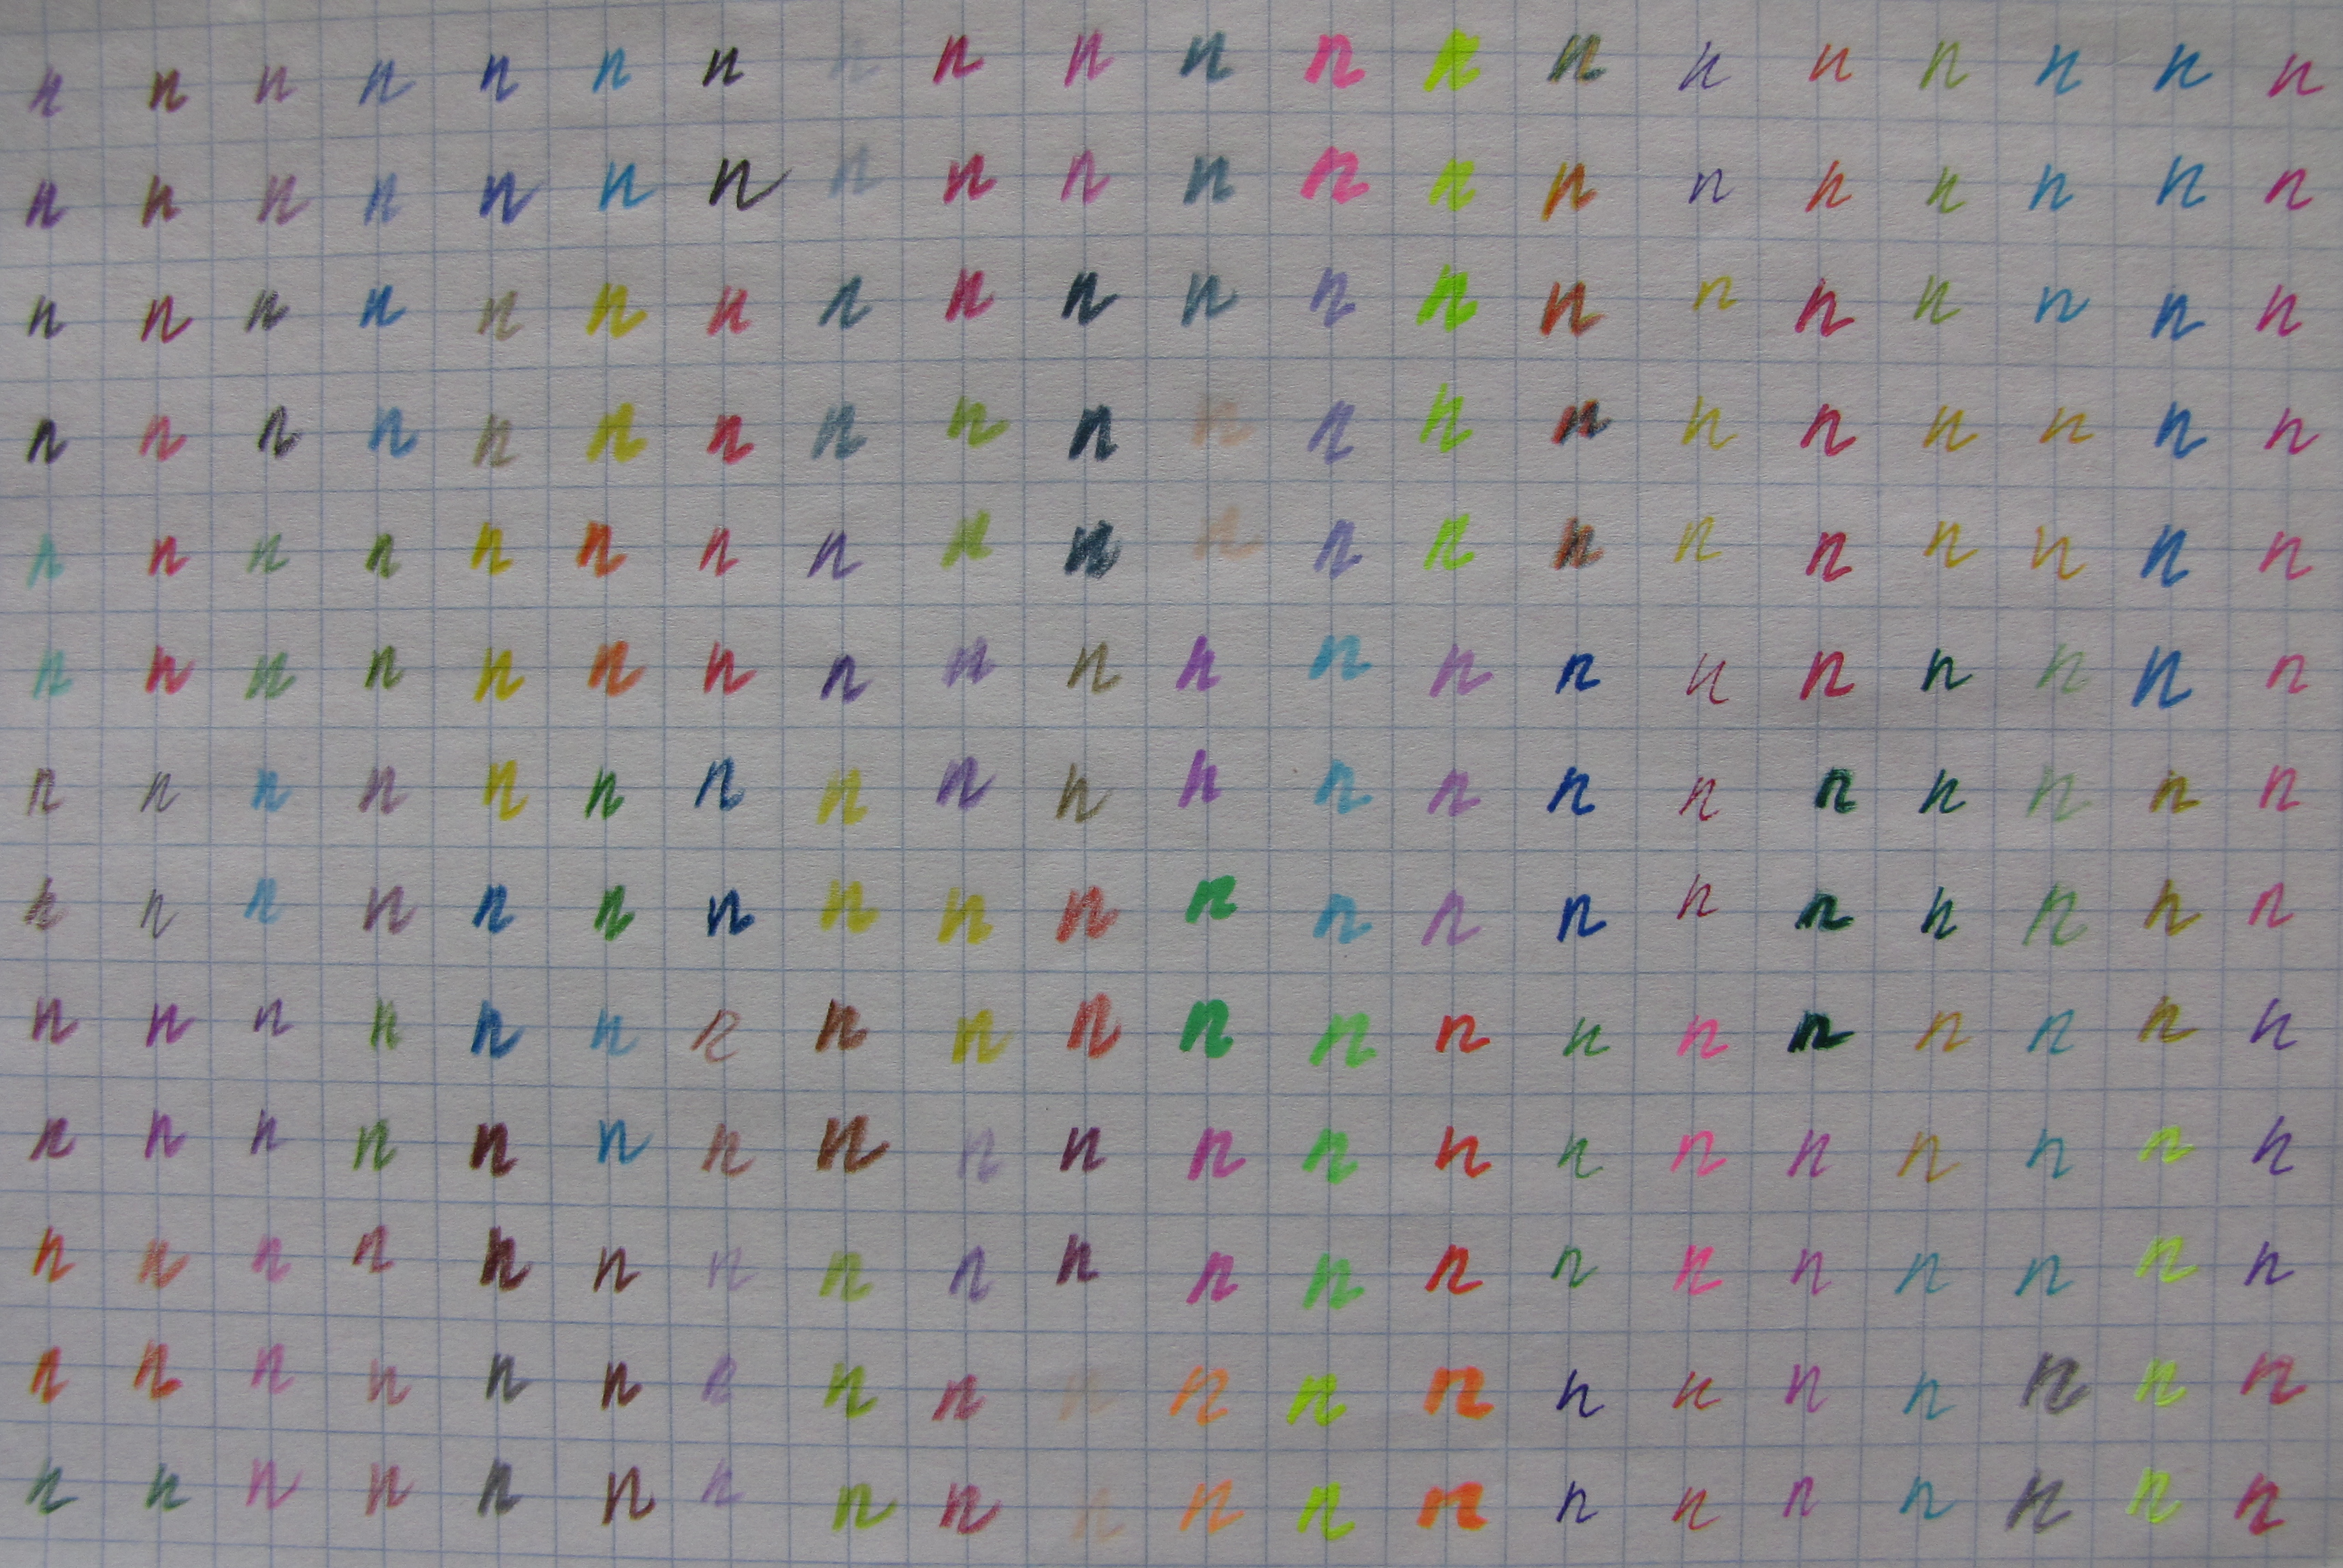 n n n n n n n n n n n n n n n n n n n n
n n n n n n n n n n n n n n n n n n n n
n n n n n n n n n n n n n n n n n n n n
n n n n n n n n n n n n n n n n n n n n
n n n n n n n n n n n n n n n n n n n n
n n n n n n n n n n n n n n n n n n n n
n n n n n n n n n n n n n n n n n n n n
n n n n n n n n n n n n n n n n n n n n
n n n n n n n n n n n n n n n n n n n n
n n n n n n n n n n n n n n n n n n n n
n n n n n n n n n n n n n n n n n n n n
n n n n n n n n n n n n n n n n n n n n
n n n n n n n n n n n n n n n n n n n n